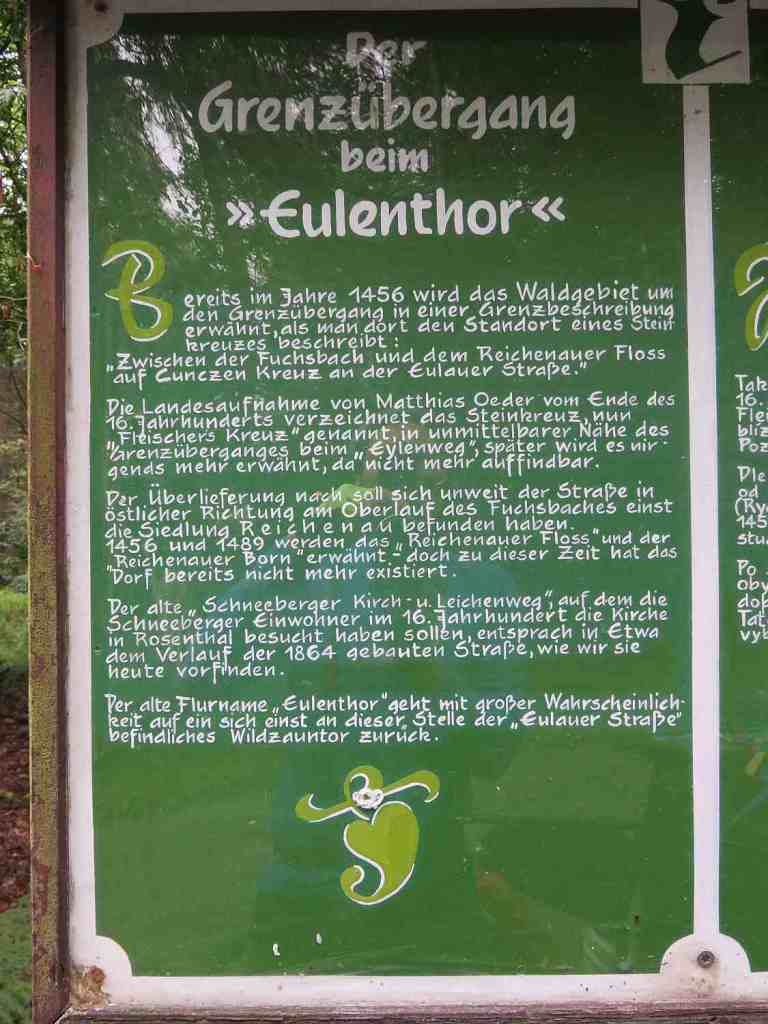 Der
Grenzübergang
beim
»Eulenthor«
Bereits im Jahre 1456 wird das Waldgebiet um
den Grenzübergang in einer Grenzbeschreibung
erwähnt, als man dort den Standort eines Stein
kreuzes beschreibt:
„Zwischen der Fuchsbach und dem Reichenauer Floss
auf Cunczen Kreuz an der Eulauer Straße."
Die Landesaufnahme von Matthias Oeder vom Ende des
16. Jahrhunderts verzeichnet das Steinkreuz, nun
„Fleischers Kreuz" genannt, in unmittelbarer Nähe des
Grenzüberganges beim „Eylenweg", später wird es nir-
gends mehr erwähnt, da nicht mehr auffindbar.
Der Überlieferung nach soll sich unweit der Straße in
östlicher Richtung am Oberlauf des Fuchsbaches einst
die Siedlung Reichenau befunden haben.
1456 und 1489 werden das „Reichenauer Floss" und der
„Reichenauer Born" erwähnt - doch zu dieser Zeit hat das
Dorf bereits nicht mehr existiert.
Der alte „Schneeberger Kirch- u. Leichenweg", auf dem die
Schneeberger Einwohner im 16. Jahrhundert die Kirche
in Rosenthal besucht haben sollen, entsprach in Etwa
dem Verlauf der 1864 gebauten Straße, wie wir sie
heute vorfinden.
Der alte Flurname „Eulenthor" geht mit großer Wahrscheinlich-
keit auf ein sich einst an dieser Stelle der „Eulauer Straße"
befindliches Wildzauntor zurück.
Tak
16.
Flei
blíz
Poz
Dle
od
(Ry
145
stu
Po
oby
dob
Tat
vyb